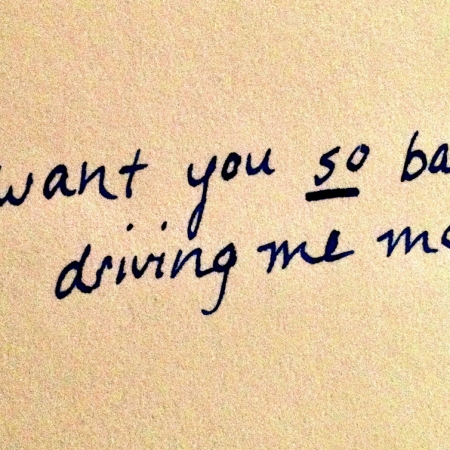 want you so ba
driving me m